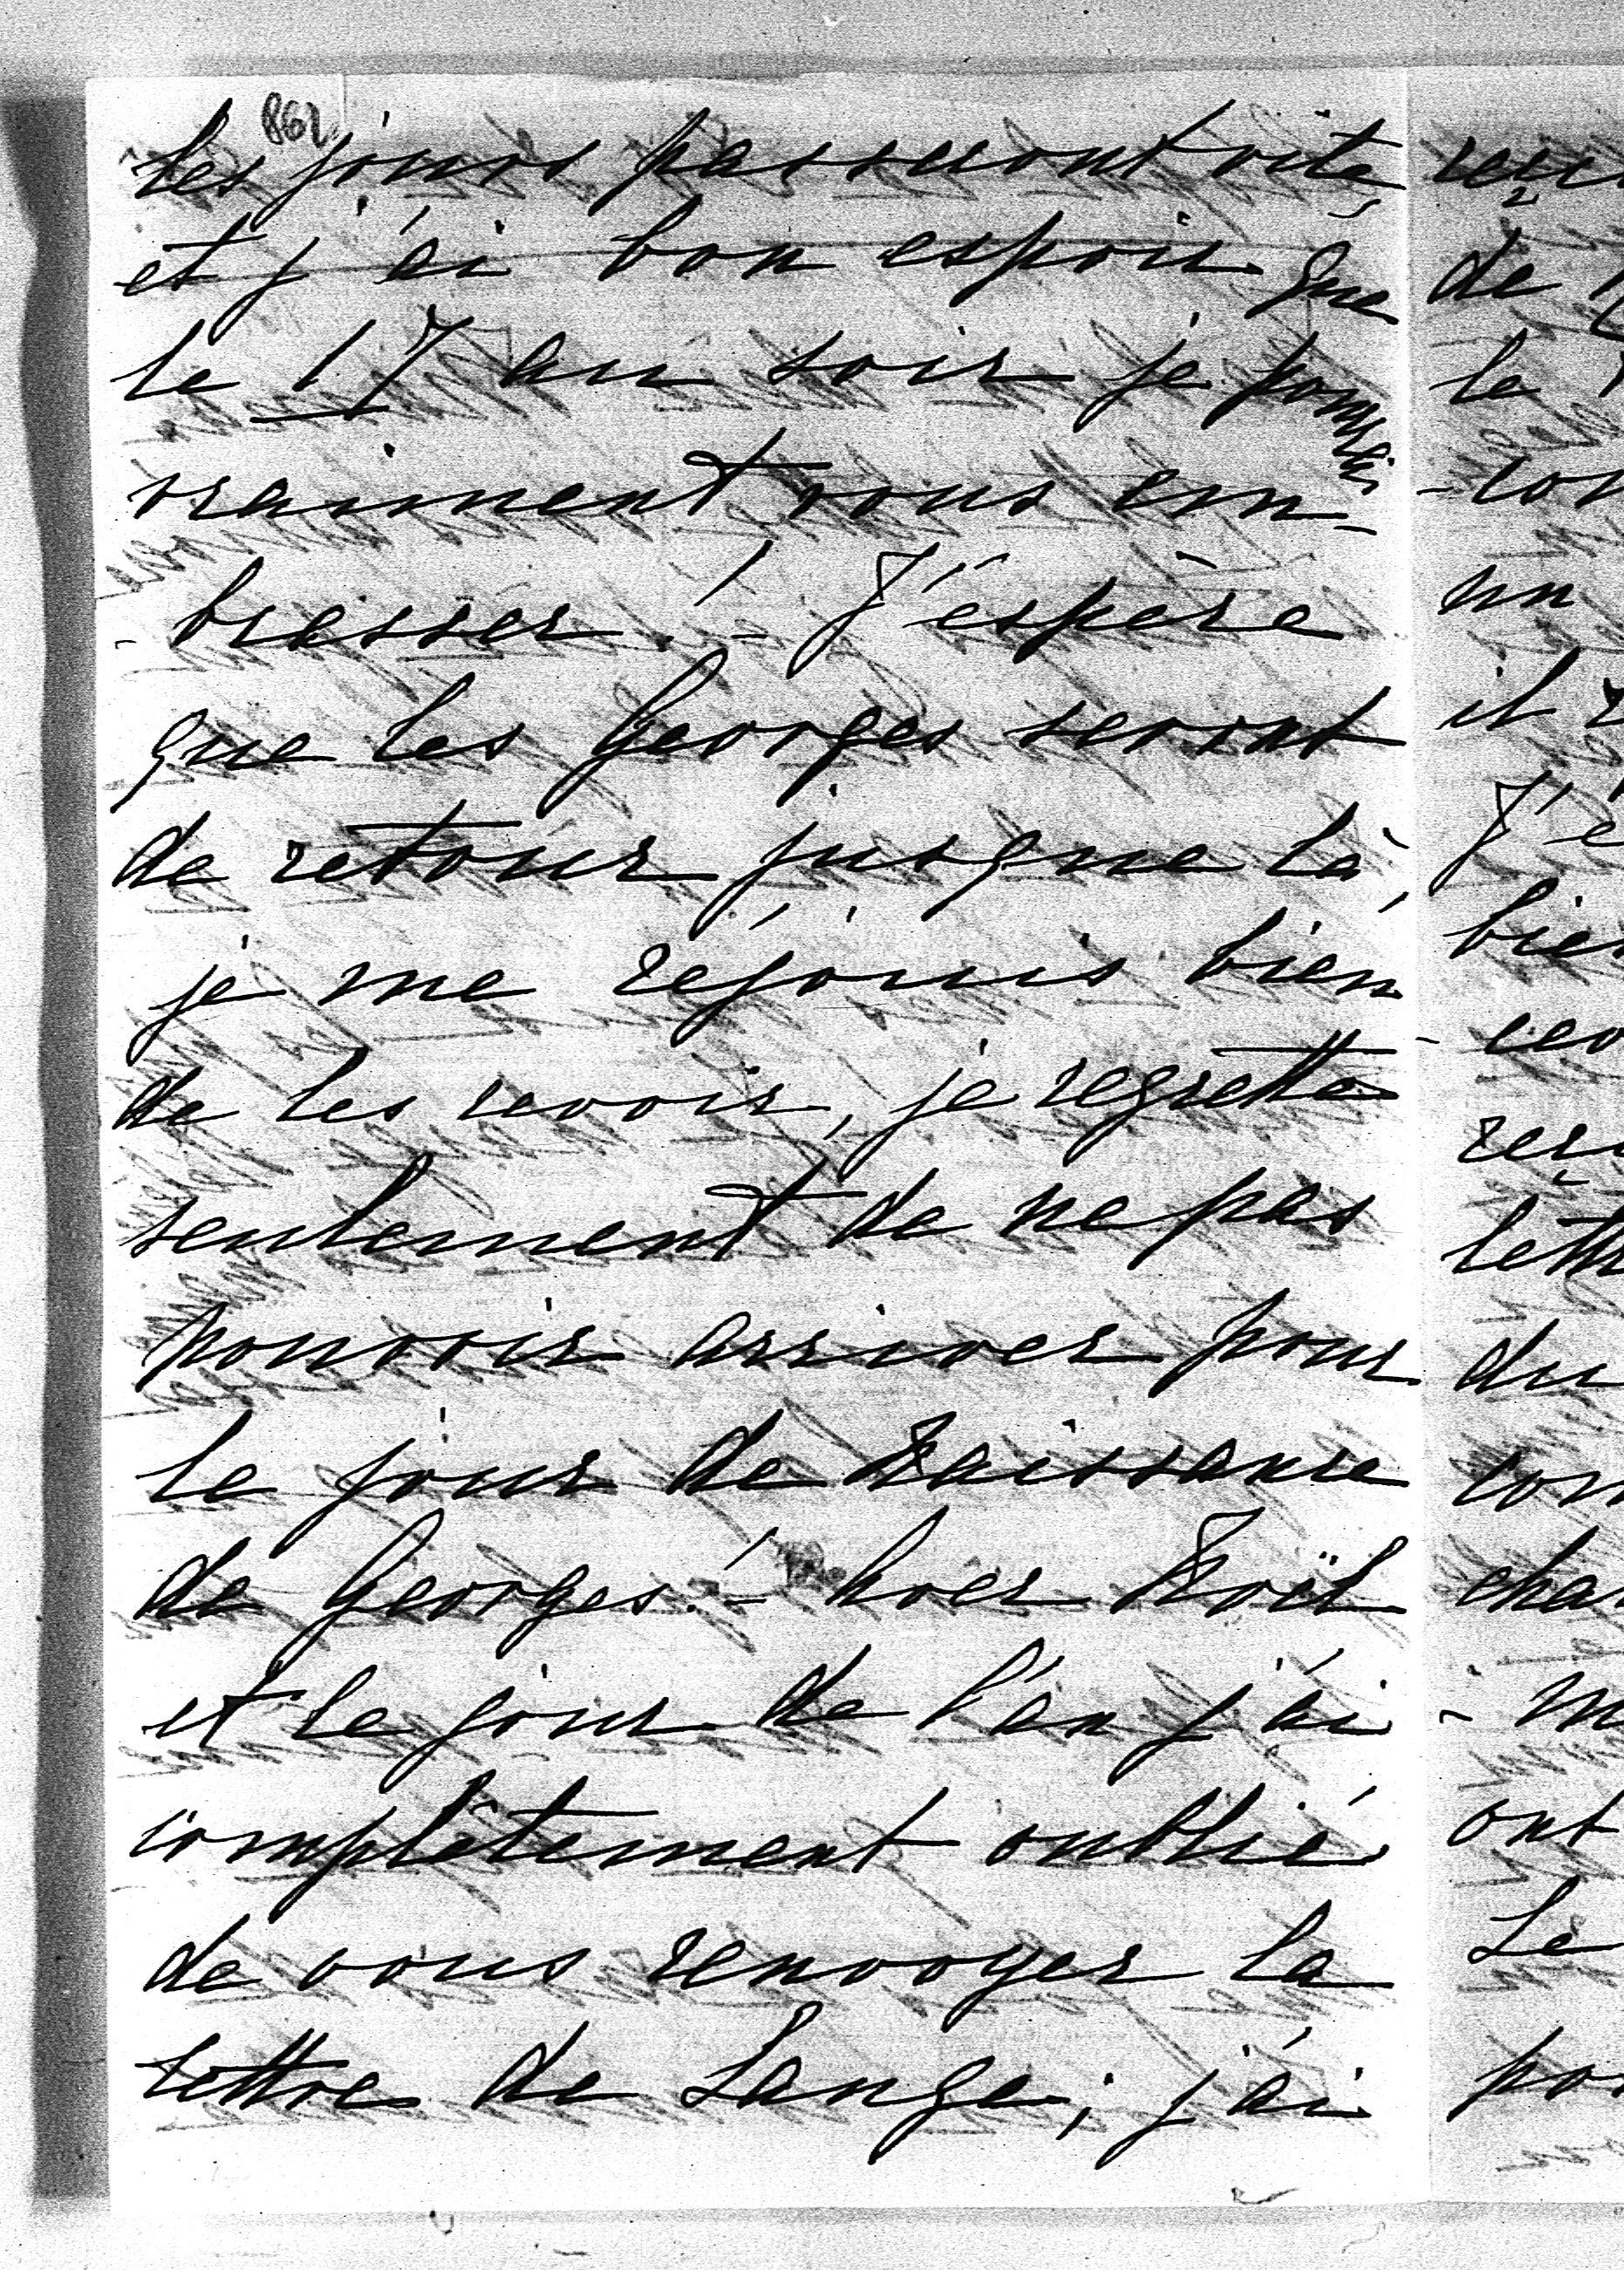 862
les jours passeront vite
et j'ai bon espoir que
le 17 au soir je pourrai
vraiment vous em-
- brasser! - J'espère
que les Georges seront
de retour jusque là,
je me réjouis bien
de les revoir, je regrette
seulement de ne pas
pouvoir arriver pour
le jour de Naissance
de Georges! - Avec Noël
et le jour de l'an j'ai
complètement oublié
de vous renvoyer la
lettre de Lange; j'ai